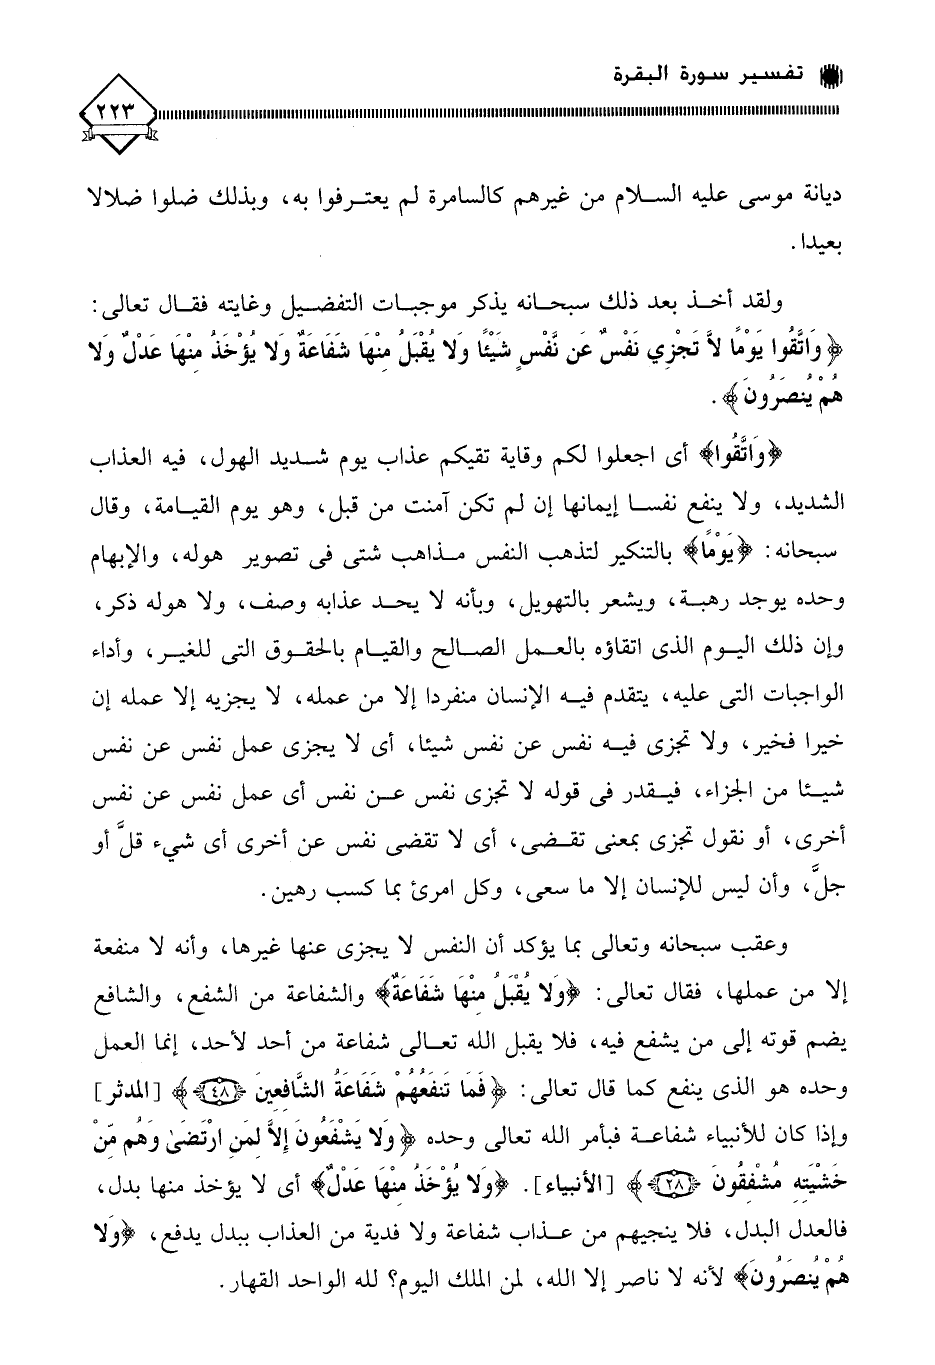 تفسير سورة البقرة
٢٢٣
ديانة موسى عليه السلام من غيرهم كالسامرة لم يعترفوا به، وبذلك ضلوا ضلالا
بعيدا.
ولقد أخذ بعد ذلك سبحانه يذكر موجبات التفضيل وغايته فقال تعالى:
﴿وَاتَّقُوا يَوْمًا لاَّ تَجْزِي نَفْسٌ عَن نَّفْسٍ شَيْئًا وَلا يُقْبَلُ مِنْهَا شَفَاعَةٌ وَلا يُؤْخَذُ مِنْهَا عَدْلٌ وَلا
هُمْ يُنصَرُونَ﴾.
﴿وَاتَّقُوا﴾ أى اجعلوا لكم وقاية تقيكم عذاب يوم شديد الهول، فيه العذاب
الشديد، ولا ينفع نفسا إيمانها إن لم تكن آمنت من قبل، وهو يوم القيامة، وقال
سبحانه: ﴿يَوْمًا﴾ بالتنكير لتذهب النفس مذاهب شتى فى تصوير هوله، والإبهام
وحده يوجد رهبة، ويشعر بالتهويل، وبأنه لا يحد عذابه وصف، ولا هوله ذكر،
وإن ذلك اليوم الذى اتقاؤه بالعمل الصالح والقيام بالحقوق التى للغير، وأداء
الواجبات التى عليه، يتقدم فيه الإنسان منفردا إلا من عمله، لا يجزيه إلا عمله إن
خيرا فخير، ولا تجزى فيه نفس عن نفس شيئا، أى لا يجزى عمل نفس عن نفس
شيئا من الجزاء، فيقدر فى قوله لا تجزى نفس عن نفس أى عمل نفس عن نفس
أخرى، أو نقول تجزى بمعنى تقضى، أى لا تقضى نفس عن أخرى أى شيء قلَّ أو
جلَّ، وأن ليس للإنسان إلا ما سعى، وكل امرئ بما كسب رهين.
وعقب سبحانه وتعالى بما يؤكد أن النفس لا يجزى عنها غيرها، وأنه لا منفعة
إلا من عملها، فقال تعالى: ﴿وَلا يُقْبَلُ مِنْهَا شَفَاعَةٌ﴾ والشفاعة من الشفع، والشافع
يضم قوته إلى من يشفع فيه، فلا يقبل الله تعالى شفاعة من أحد لأحد، إنما العمل
وحده هو الذى ينفع كما قال تعالى: ﴿فَمَا تَنفَعُهُمْ شَفَاعَةُ الشَّافِعِينَ ﴿٤٨﴾﴾ [المدثر]
وإذا كان للأنبياء شفاعة فبأمر الله تعالى وحده ﴿وَلا يَشْفَعُونَ إِلاَّ لِمَنِ ارْتَضَىٰ وَهُم مِّنْ
خَشْيَتِهِ مُشْفِقُونَ ﴿٢٨﴾﴾ [الأنبياء]. ﴿وَلا يُؤْخَذُ مِنْهَا عَدْلٌ﴾ أى لا يؤخذ منها بدل،
فالعدل البدل، فلا ينجيهم من عذاب شفاعة ولا فدية من العذاب ببدل يدفع، ﴿وَلا
هُمْ يُنصَرُونَ﴾ لأنه لا ناصر إلا الله، لمن الملك اليوم؟ لله الواحد القهار.